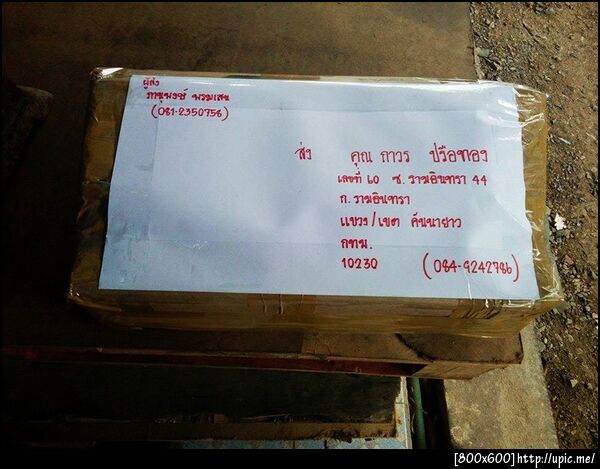 ผู้ส่ง
ภานุพงษ์ พรมเสน
(081-2350758)
ส่ง คุณ ถาวร ปรือทอง
เลขที่ ๖๐ ซ. รามอินทรา 44
ถ. รามอินทรา
แขวง/เขต คันนายาว
กทม.
10230 (084-9242786)
[800x600]http://upic.me/